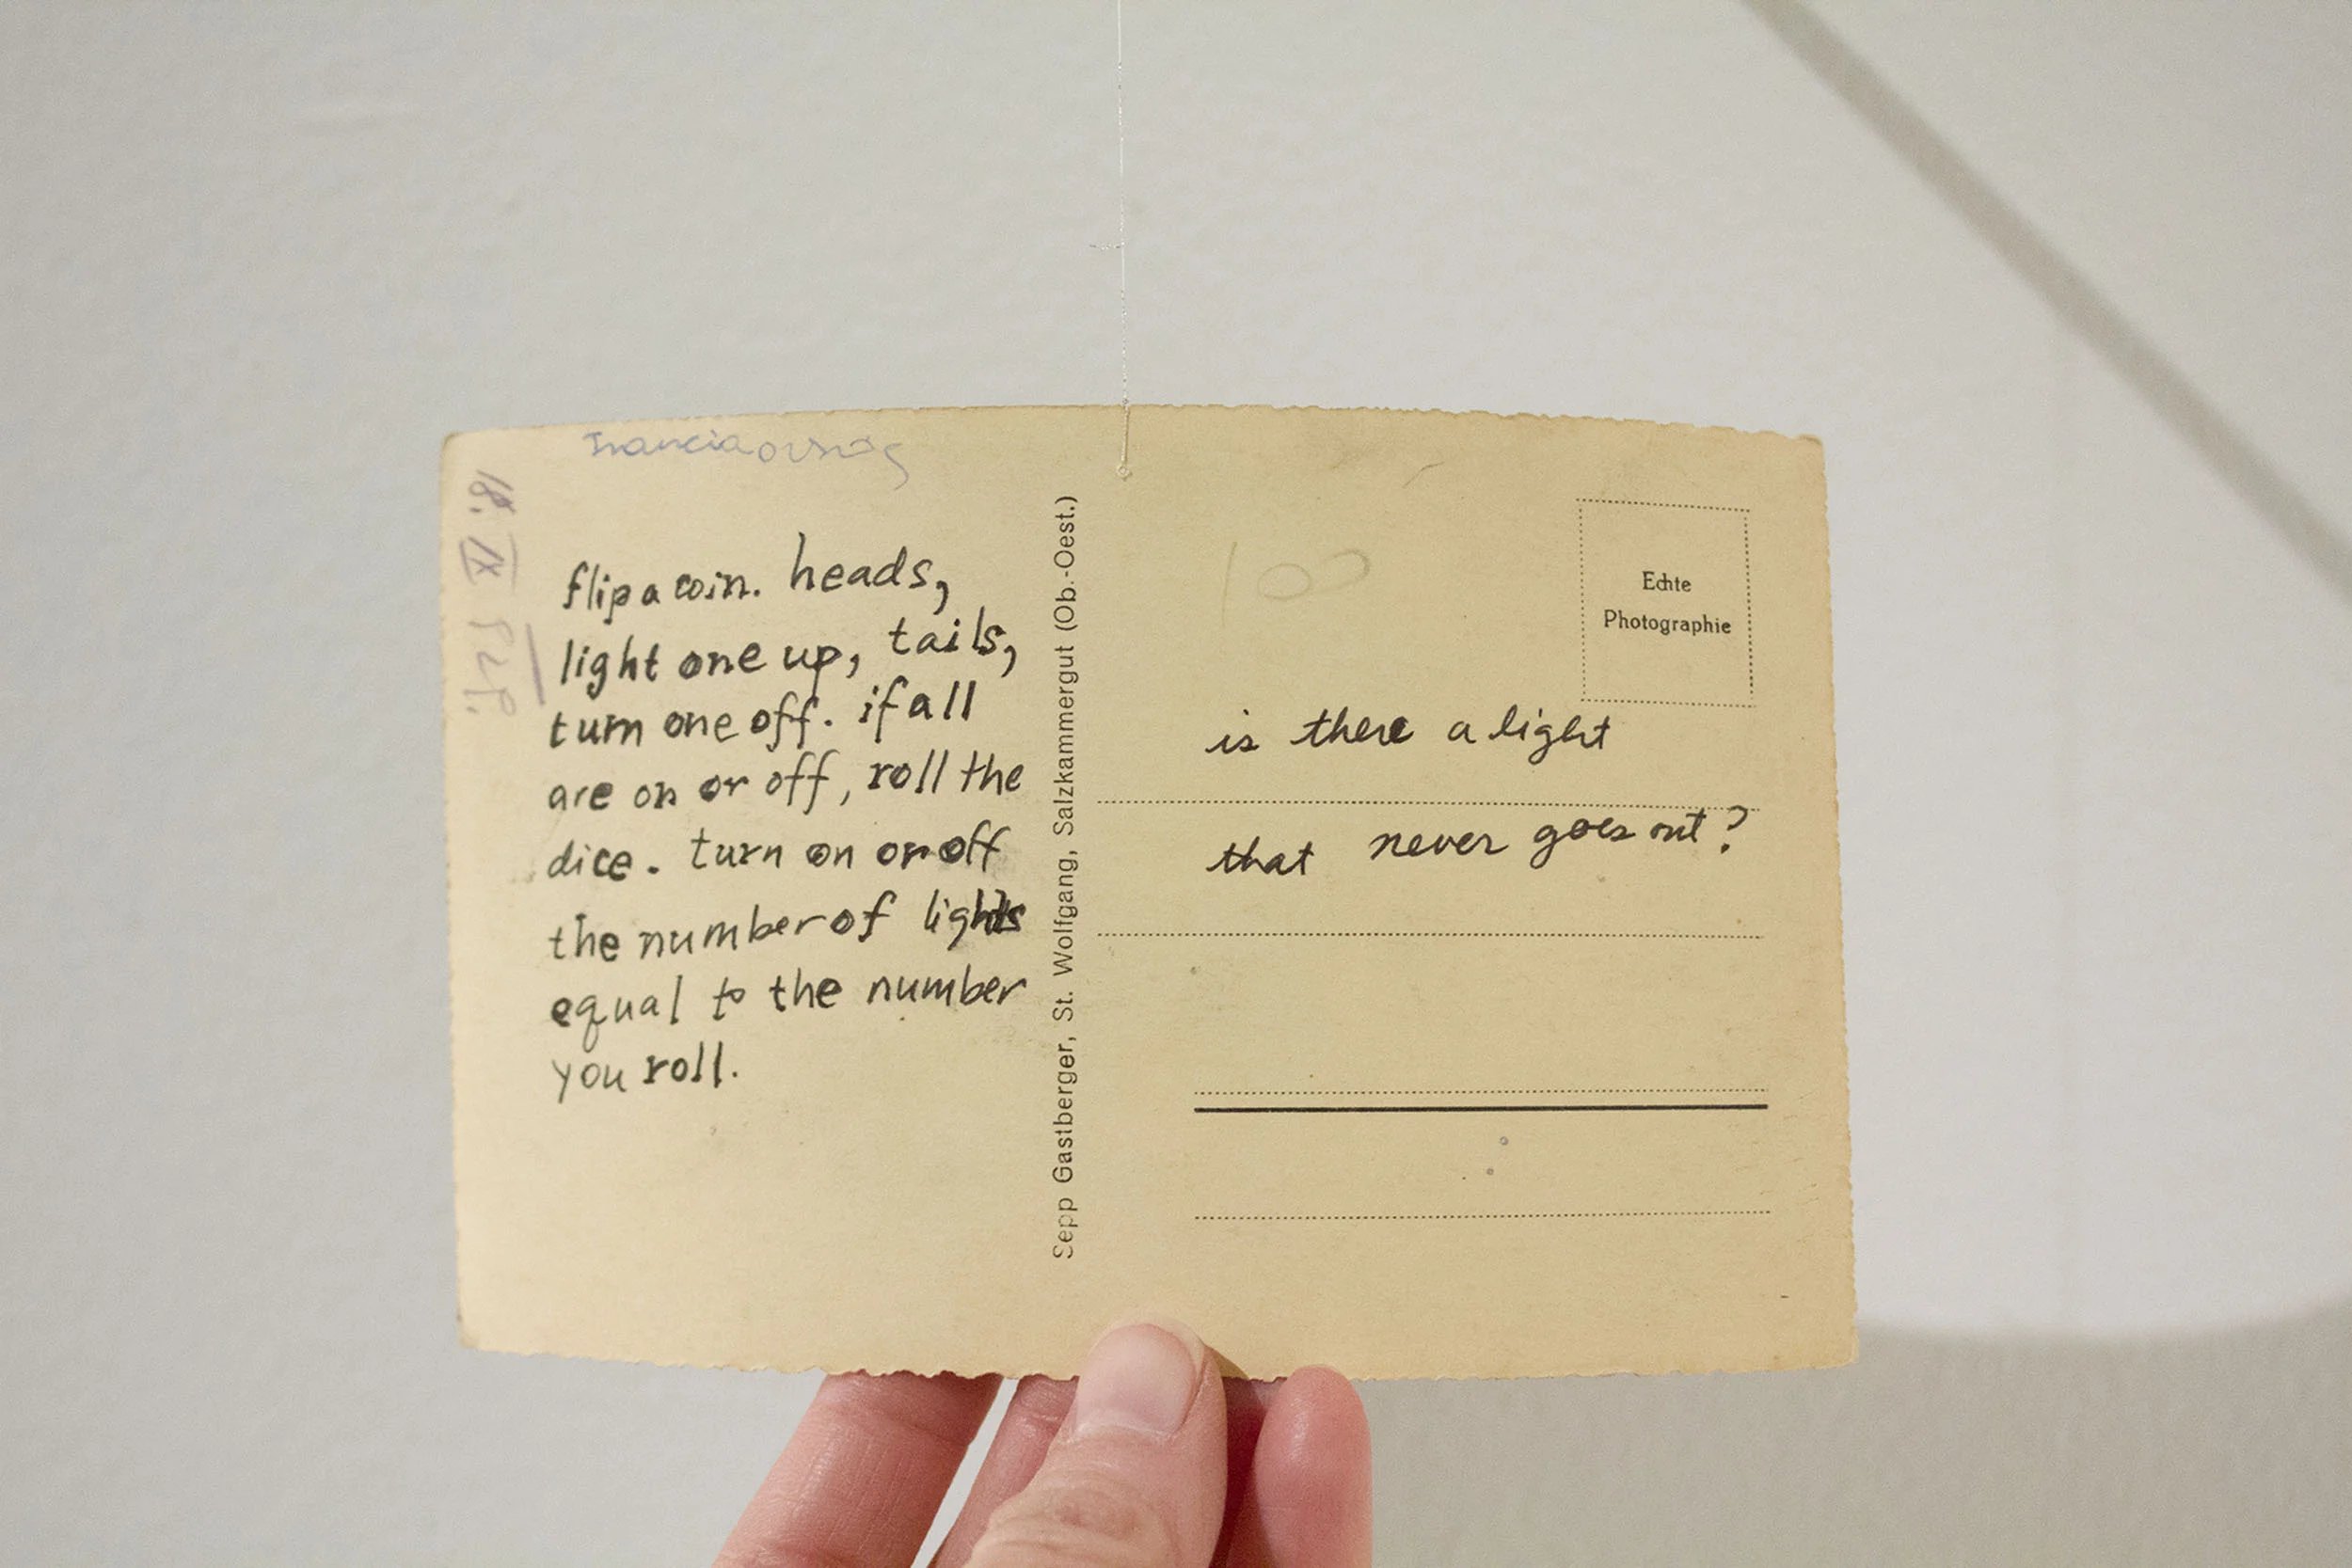 18. IX
flip a coin. heads,
light one up, tails,
turn one off. if all
are on or off, roll the
dice. turn on or off
the number of lights
equal to the number
you roll.
Sepp Gastberger, St. Wolfgang, Salzkammergut (Ob.-Oest.)
Echte
Photographie
is there a light
that never goes out?